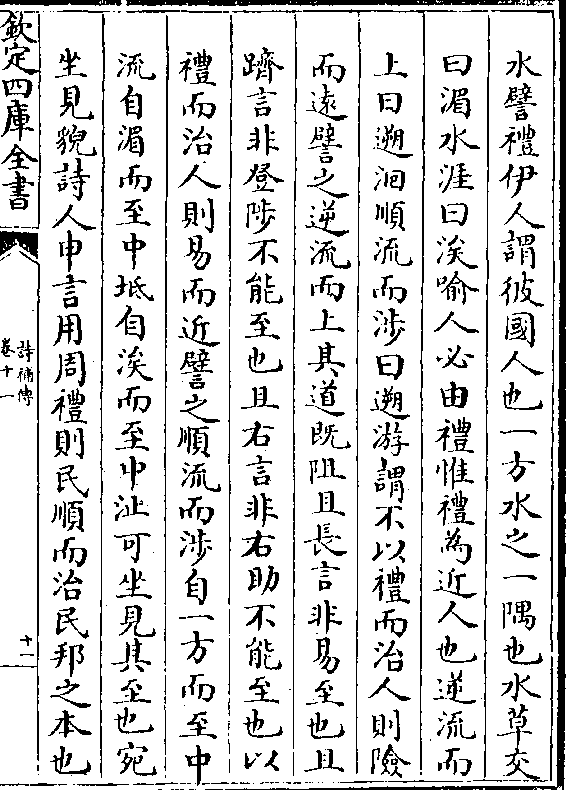 水譬禮伊人謂彼國人也一方水之一隅也水草交
曰湄水涯曰涘喻人必由禮惟禮為近人也逆流而
上曰遡洄順流而涉曰遡游謂不以禮而治人則險
而遠譬之逆流而上其道既阻且長言非易至也且
躋言非登陟不能至也且右言非右助不能至也以
禮而治人則易而近譬之順流而涉自一方而至中
流自湄而至中坻自涘而至中沚可坐見其至也宛
坐見貌詩人申言用周禮則民順而治民邦之本也
欽定四庫全書
詩補傳
卷十一
十二